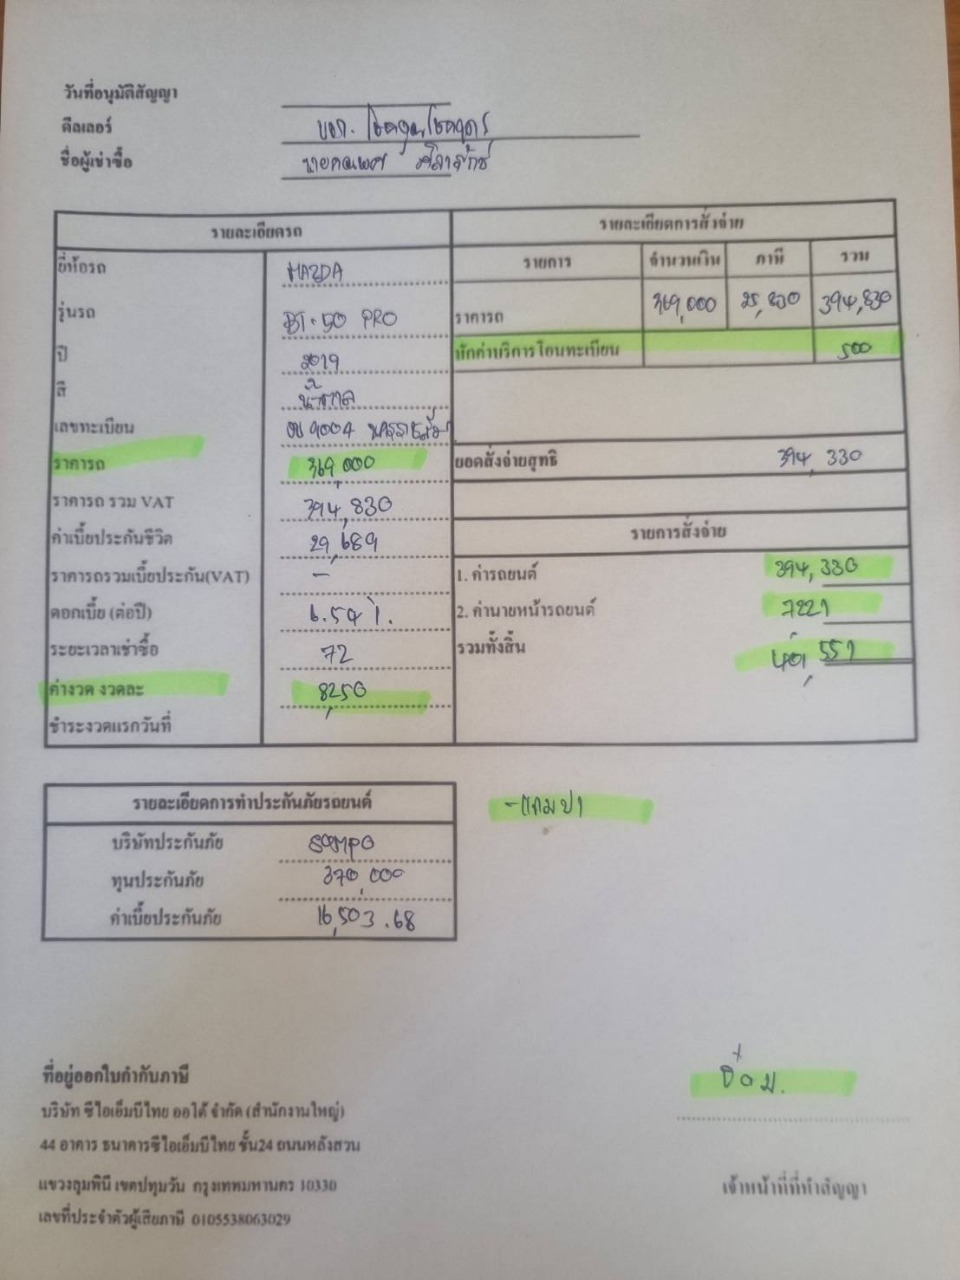 วันที่อนุมัติสัญญา
ดีลเลอร์ บจก.
ชื่อผู้เช่าซื้อ
รายละเอียดรถ
ยี่ห้อรถ MAZDA
รุ่นรถ BT-50 PRO
ปี 2019
สี น้ำตาล
เลขทะเบียน
ราคารถ 369,000
ราคารถ รวม VAT 394,830
ค่าเบี้ยประกันชีวิต 29,689
ราคารถรวมเบี้ยประกัน(VAT) -
ดอกเบี้ย (ต่อปี)
ระยะเวลาเช่าซื้อ 72
ค่างวด งวดละ 8,250
ชำระงวดแรกวันที่
รายละเอียดการสั่งจ่าย
รายการ จำนวนเงิน ภาษี รวม
ราคารถ 369,000 25,830 394,830
หักค่าบริการโอนทะเบียน 500
ยอดสั่งจ่ายสุทธิ 394,330
รายการสั่งจ่าย
1. ค่ารถยนต์ 394,330
2. ค่านายหน้ารถยนต์ 7221
รวมทั้งสิ้น 401,551
รายละเอียดการทำประกันภัยรถยนต์
บริษัทประกันภัย SOMPO
ทุนประกันภัย 370,000
ค่าเบี้ยประกันภัย 16,503.68
ที่อยู่ออกใบกำกับภาษี
บริษัท ซีไอเอ็มบีไทย ออโต้ จำกัด (สำนักงานใหญ่)
44 อาคาร ธนาคารซีไอเอ็มบีไทย ชั้น24 ถนนหลังสวน
แขวงลุมพินี เขตปทุมวัน กรุงเทพมหานคร 10330
เลขที่ประจำตัวผู้เสียภาษี 0105538063029
เจ้าหน้าที่ที่ทำสัญญา